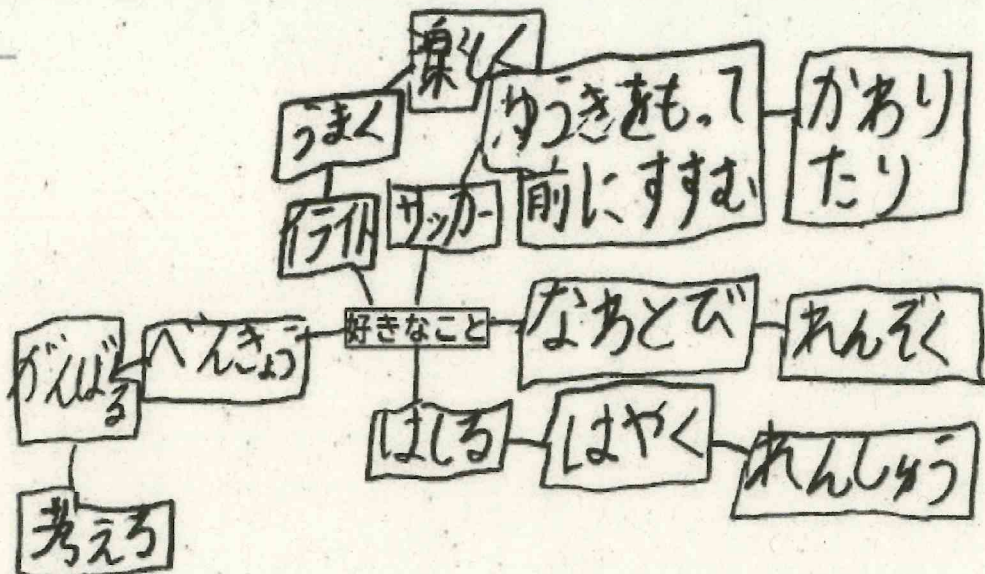 楽しく
うまく
ゆうきをもって
前にすすむ
かわり
たり
イライト
サッカー
好きなこと
なわとび
れんぞく
がんばる
べんきょう
はしる
はやく
れんしゅう
考えろ